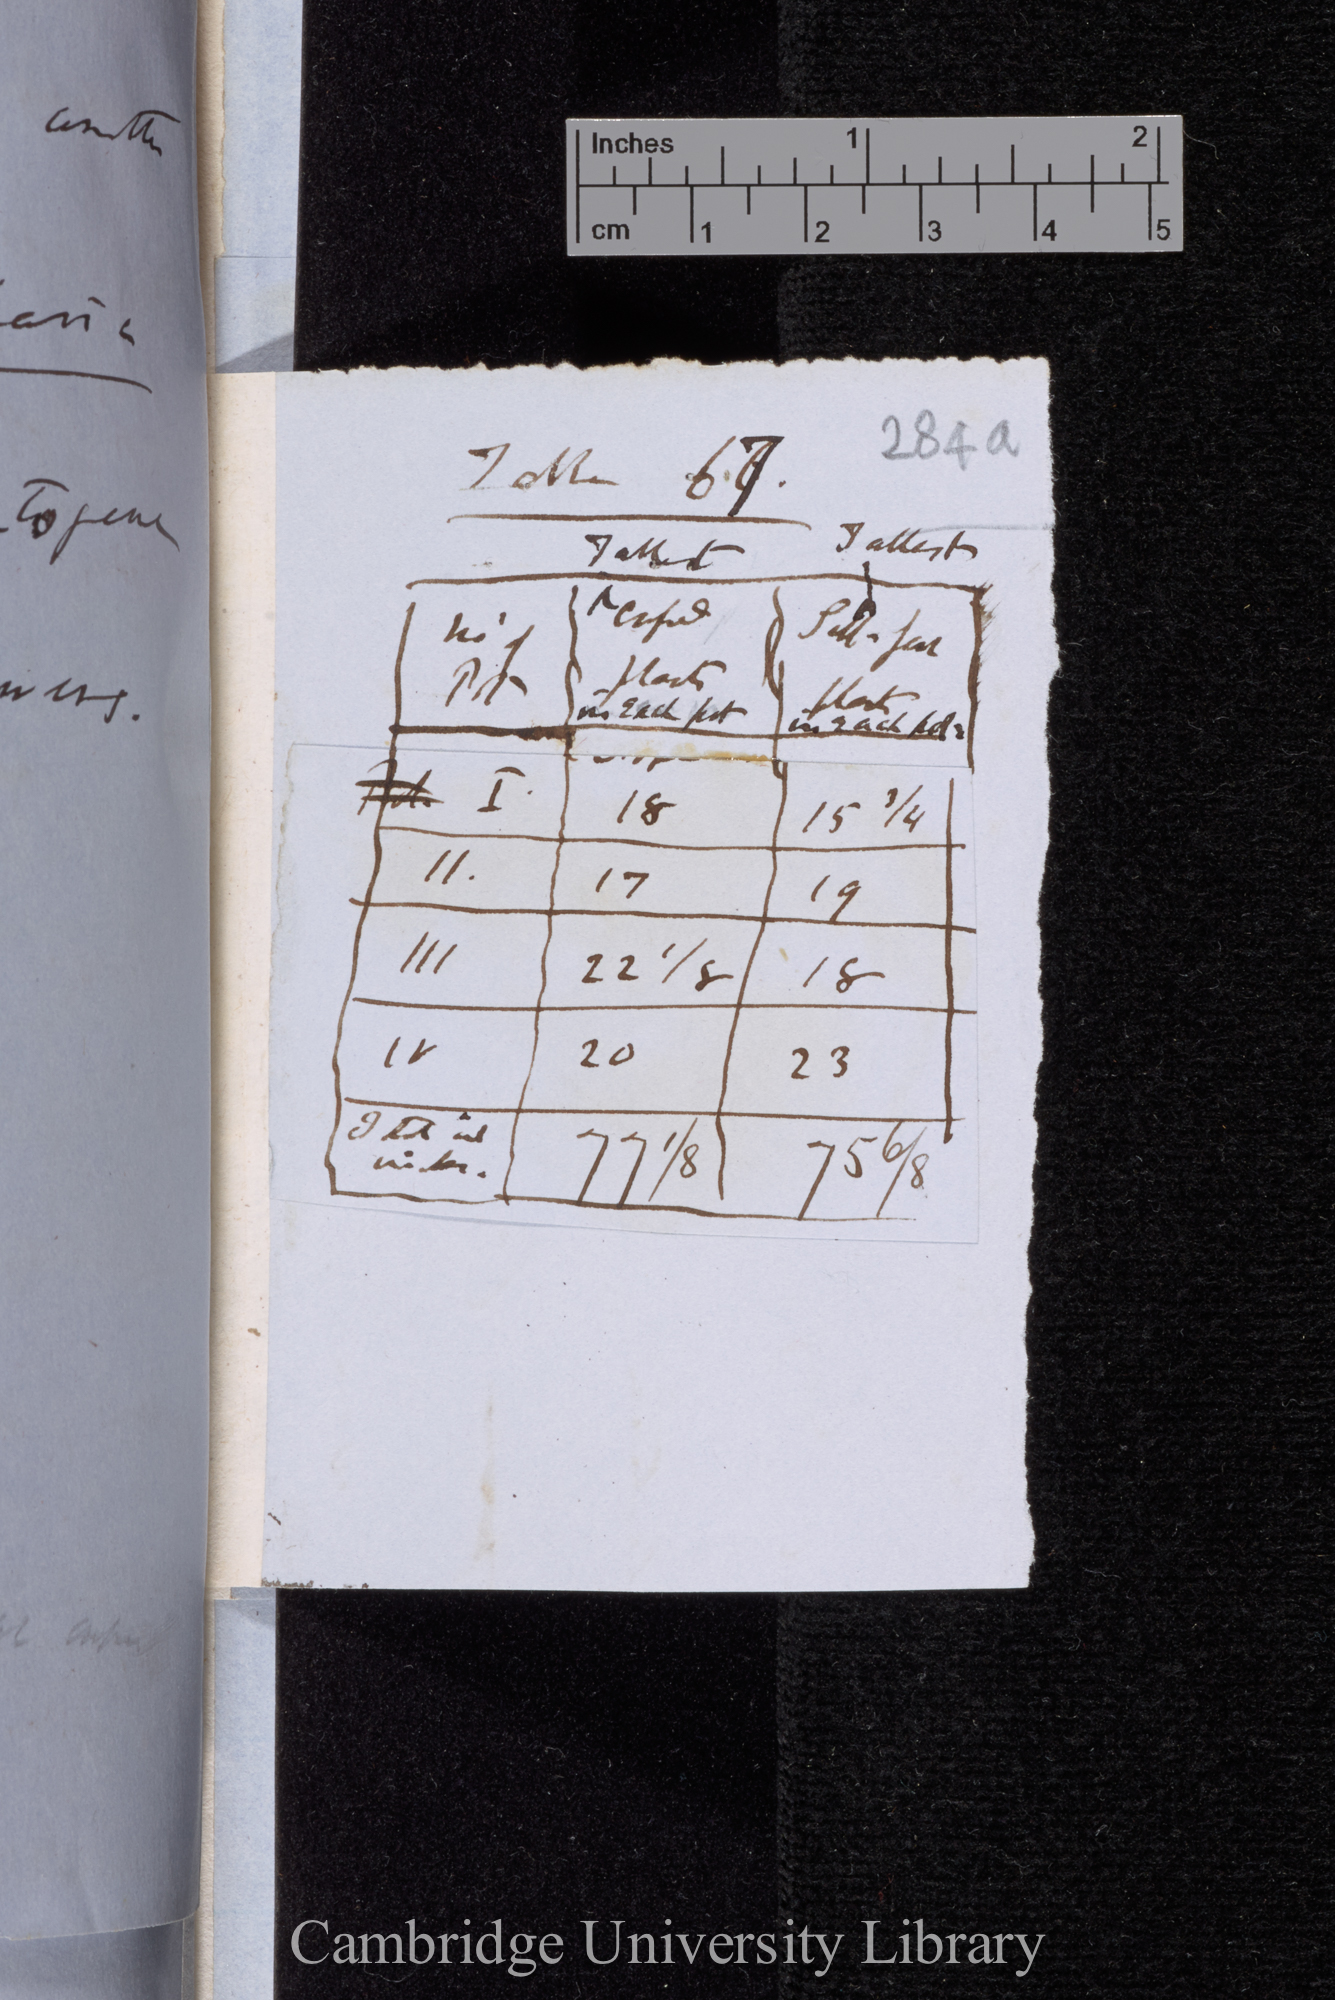 another
Inches 1 2
cm 1 2 3 4 5
284a
Table 67.
Tallest Tallest
No of Crossed Self-fer
Pot plants plants
in each pot in each pot
I. 18 15 3/4
II. 17 19
III 22 1/8 18
IV 20 23
Total in 77 1/8 75 6/8
inches.
Cambridge University Library